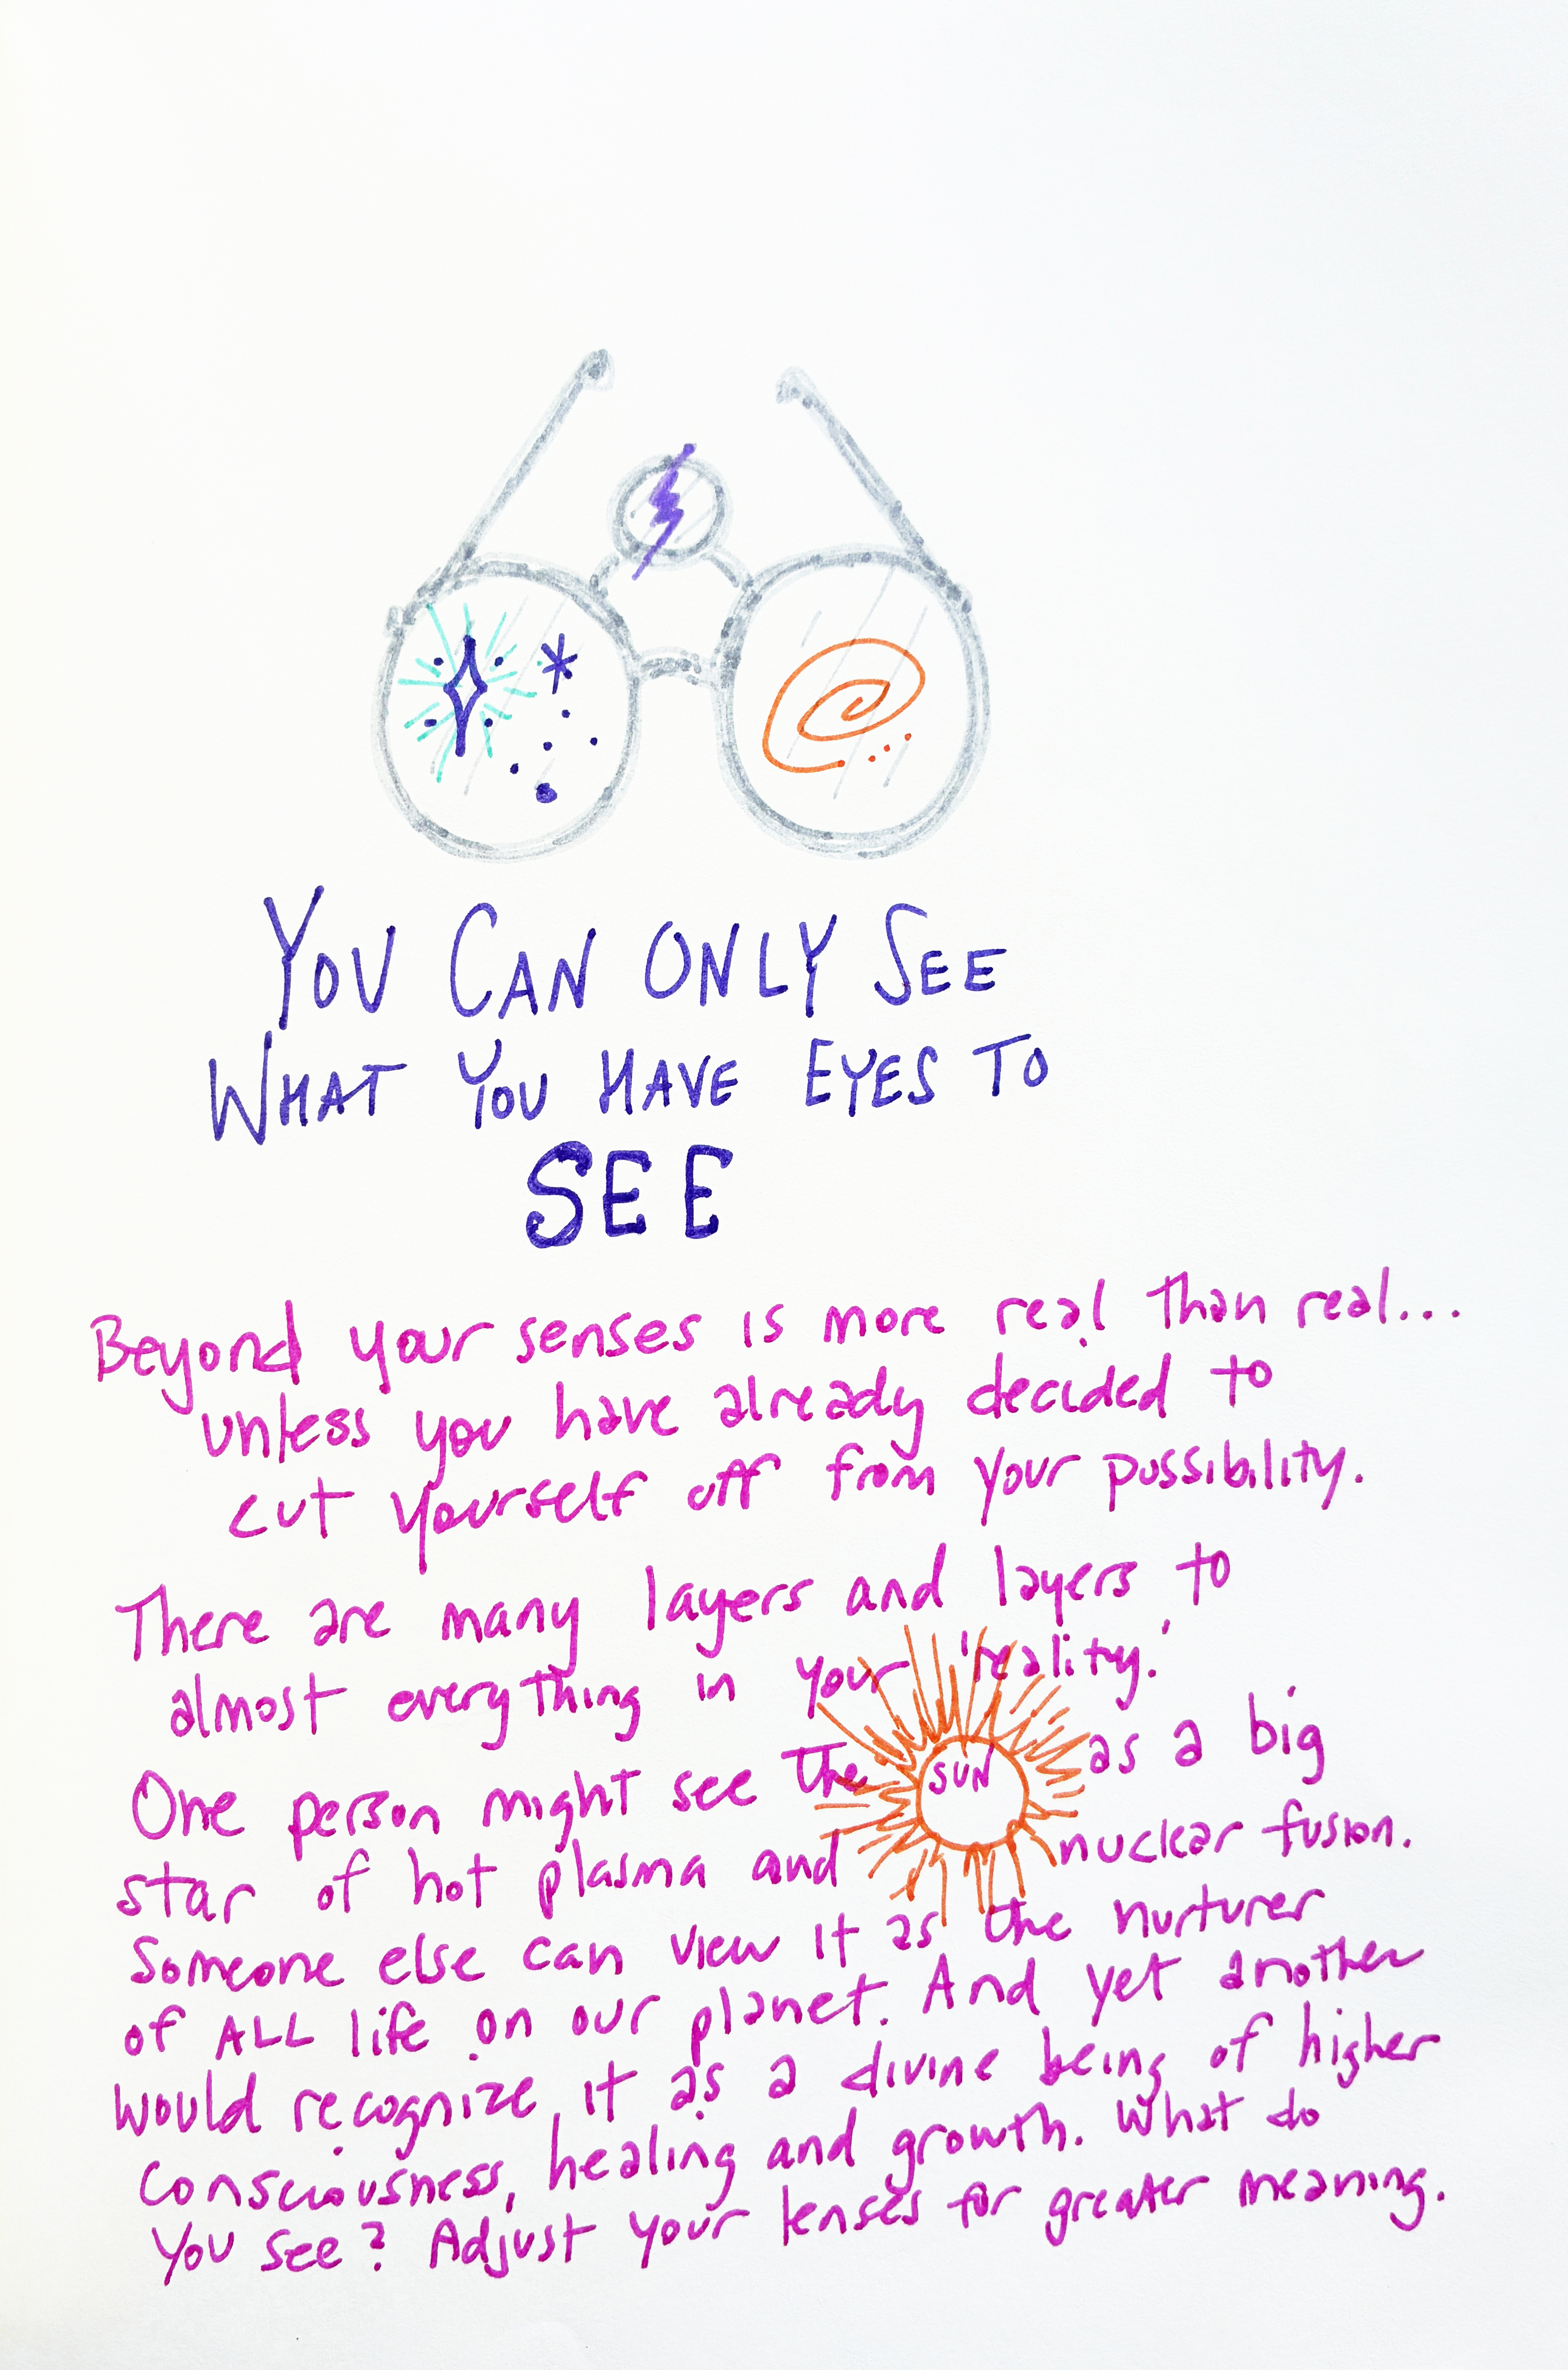 YOU CAN ONLY SEE
WHAT YOU HAVE EYES TO
SEE
Beyond your senses is more real than real...
unless you have already decided to
cut yourself off from your possibility.
There are many layers and layers to
almost everything in your 'reality.'
One person might see the SUN as a big
star of hot plasma and nuclear fusion.
Someone else can view it as the nurturer
of ALL life on our planet. And yet another
would recognize it as a divine being of higher
consciousness, healing and growth. What do
you see? Adjust your lenses for greater meaning.